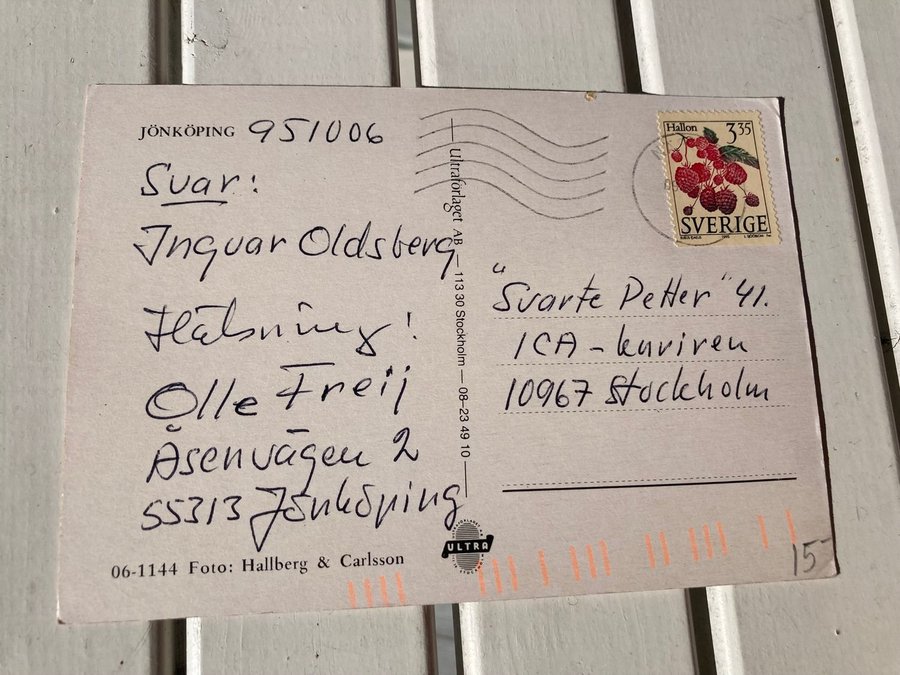 JÖNKÖPING 951006
Svar:
Ingvar Oldsberg
Hälsning!
Olle Freij
Åsenvägen 2
55313 Jönköping
06-1144 Foto: Hallberg & Carlsson
Ultraförlaget AB — 113 30 Stockholm — 08-23 49 10
ULTRA
Hallon 3 35
SVERIGE
"Svarte Petter" 41.
ICA-kuriren
10967 Stockholm
15-